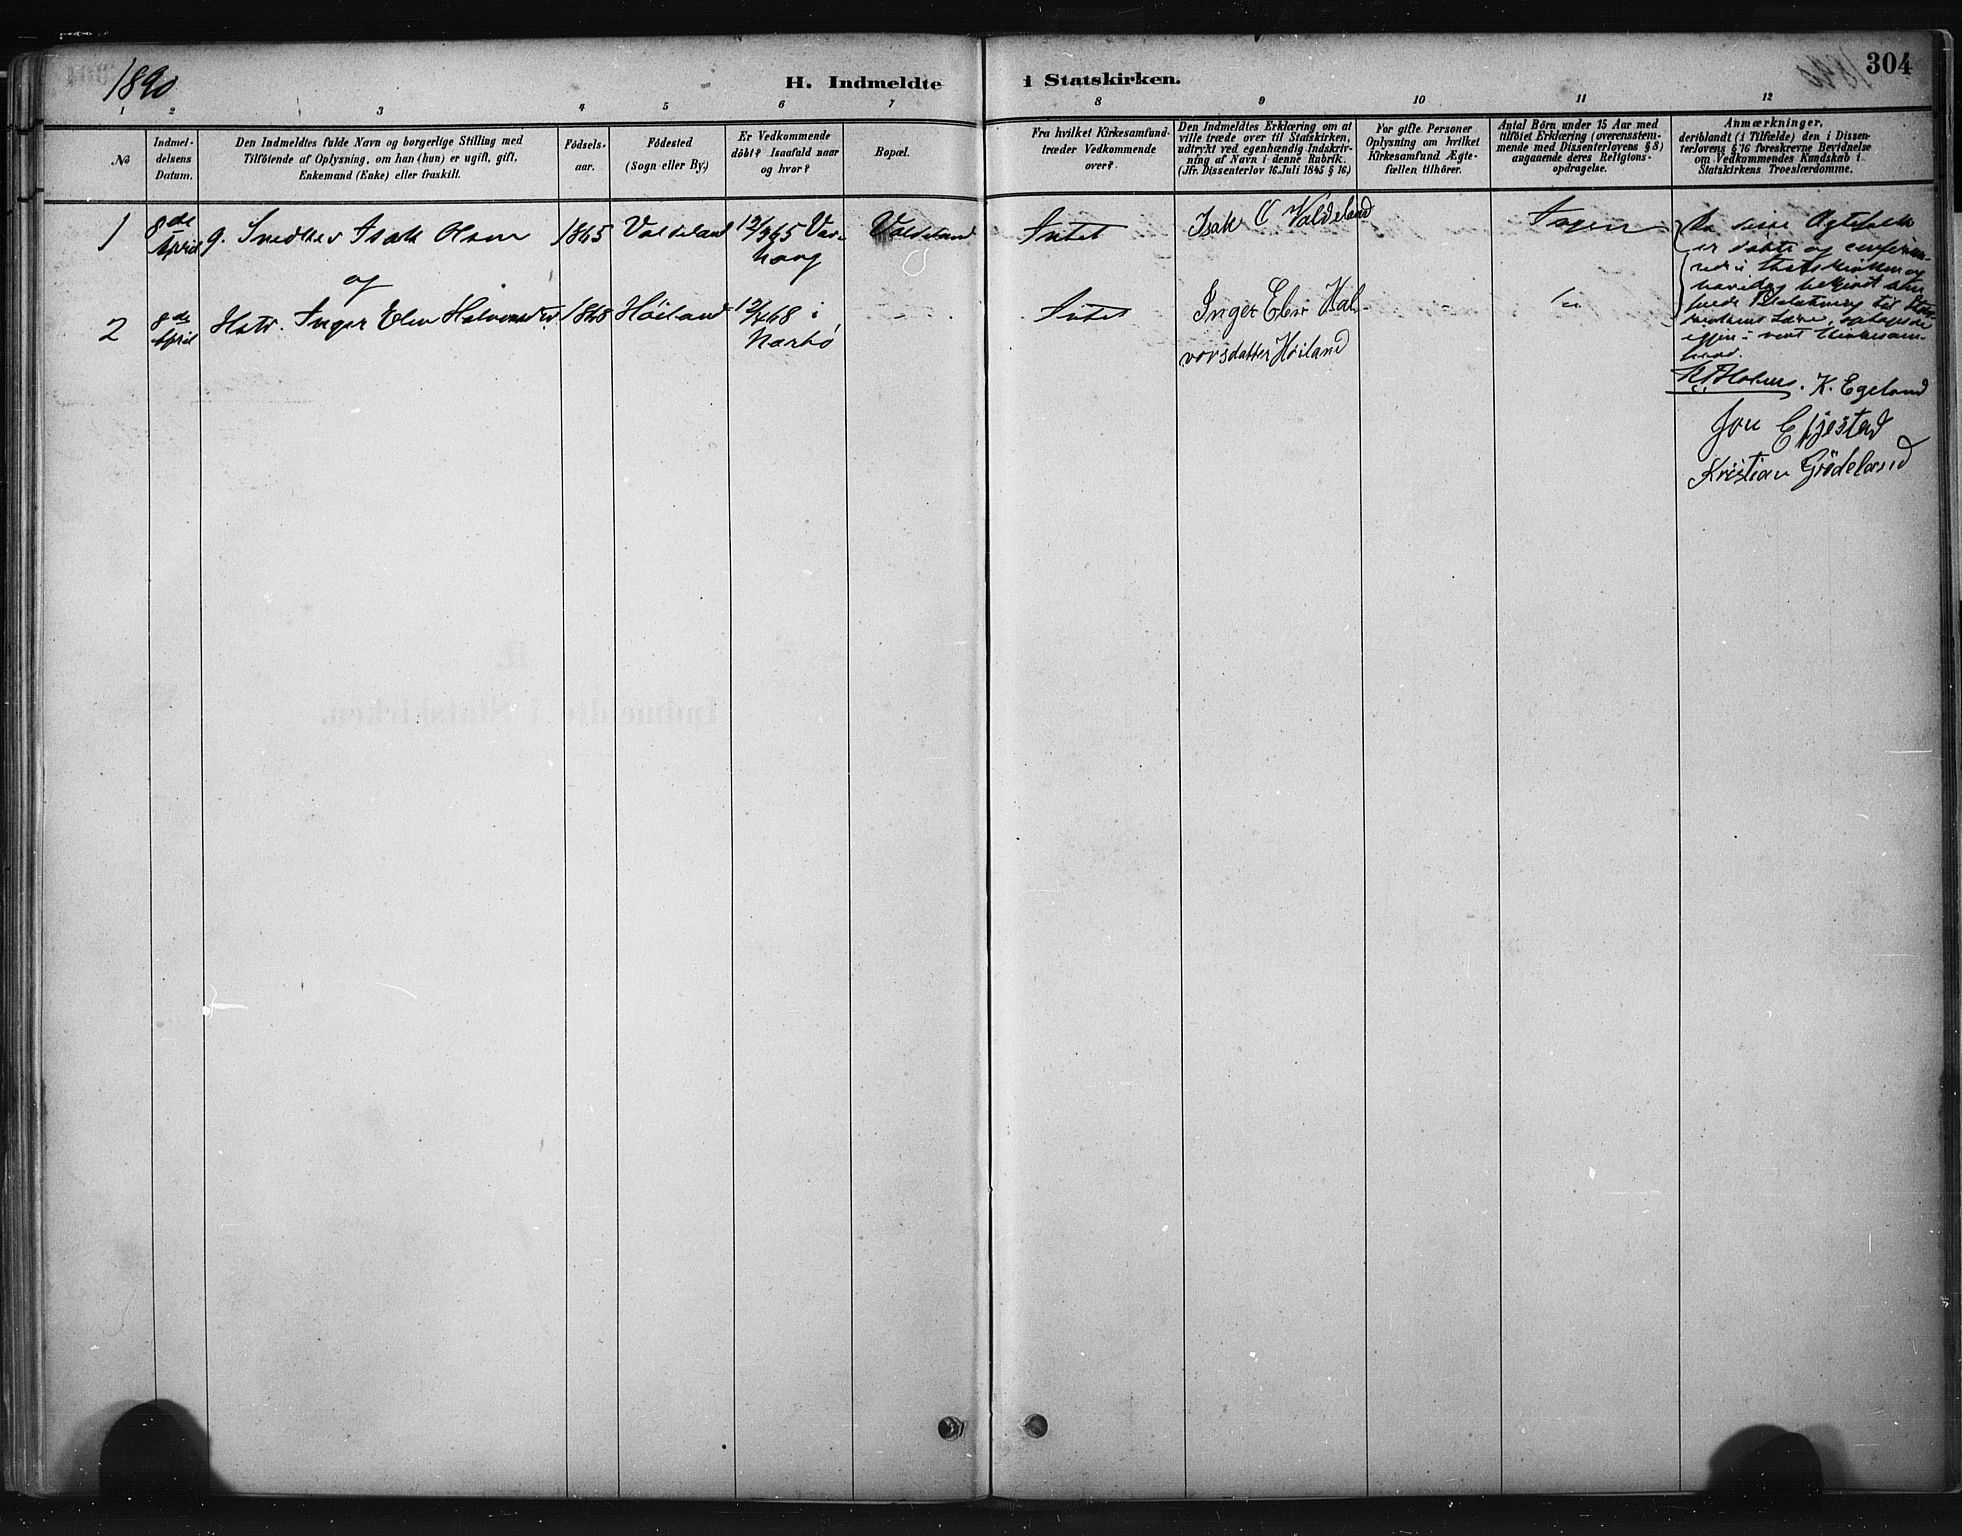 1890
H. Indmeldte i Statskirken.
304
1 2 3 4 5 6 7 8 9 10 11 12
No
Indmel-
delsens
Datum.
Den Indmeldtes fulde Navn og borgerlige Stilling med
Tilföiende af Oplysning, om han (hun) er ugift, gift,
Enkemand (Enke) eller fraskilt.
Födsels-
aar.
Födested
(Sogn eller By.)
Er Vedkommende
döbt? Isaafald naar
og hvor?
Bopæl.
Fra hvilket Kirkesamfund
træder Vedkommende
over?
Den Indmeldtes Erklæring om at
ville træde over til Statskirken,
udtrykt ved egenhændig Indskriv-
ning af Navn i denne Rubrik.
(Jfr. Dissenterlov 16. Juli 1845 § 16)
For gifte Personer
Oplysning om hvilket
Kirkesamfund Ægte-
fællen tilhörer.
Antal Börn under 15 Aar med
tilföiet Erklæring (overensstem-
mende med Dissenterlovens § 8)
angaaende deres Religions-
opdragelse.
Anmærkninger,
deriblandt (i Tilfælde) den i Dissen-
terlovens § 16 foreskrevne Bevidnelse
om Vedkommendes Kundskab i
Statskirkens Troeslærdomme.
1
8de
April
g. Snedker Isak Olsen
1865
Valdeland
12/9 65 Var-
haug
Valdeland
Intet
Isak O Valdeland
Ingen
og
2
8de
April
Hstr. Inger Elen
1868
Höiland
12/4 68 i
Nærbö
Intet
Inger Elen Hal-
vorsdatter Höiland
Da disse Ægtefolk
er döbte og confirme-
rede i Statskirken og
K. Egeland
Jon Efjestad
Kristian Grödeland